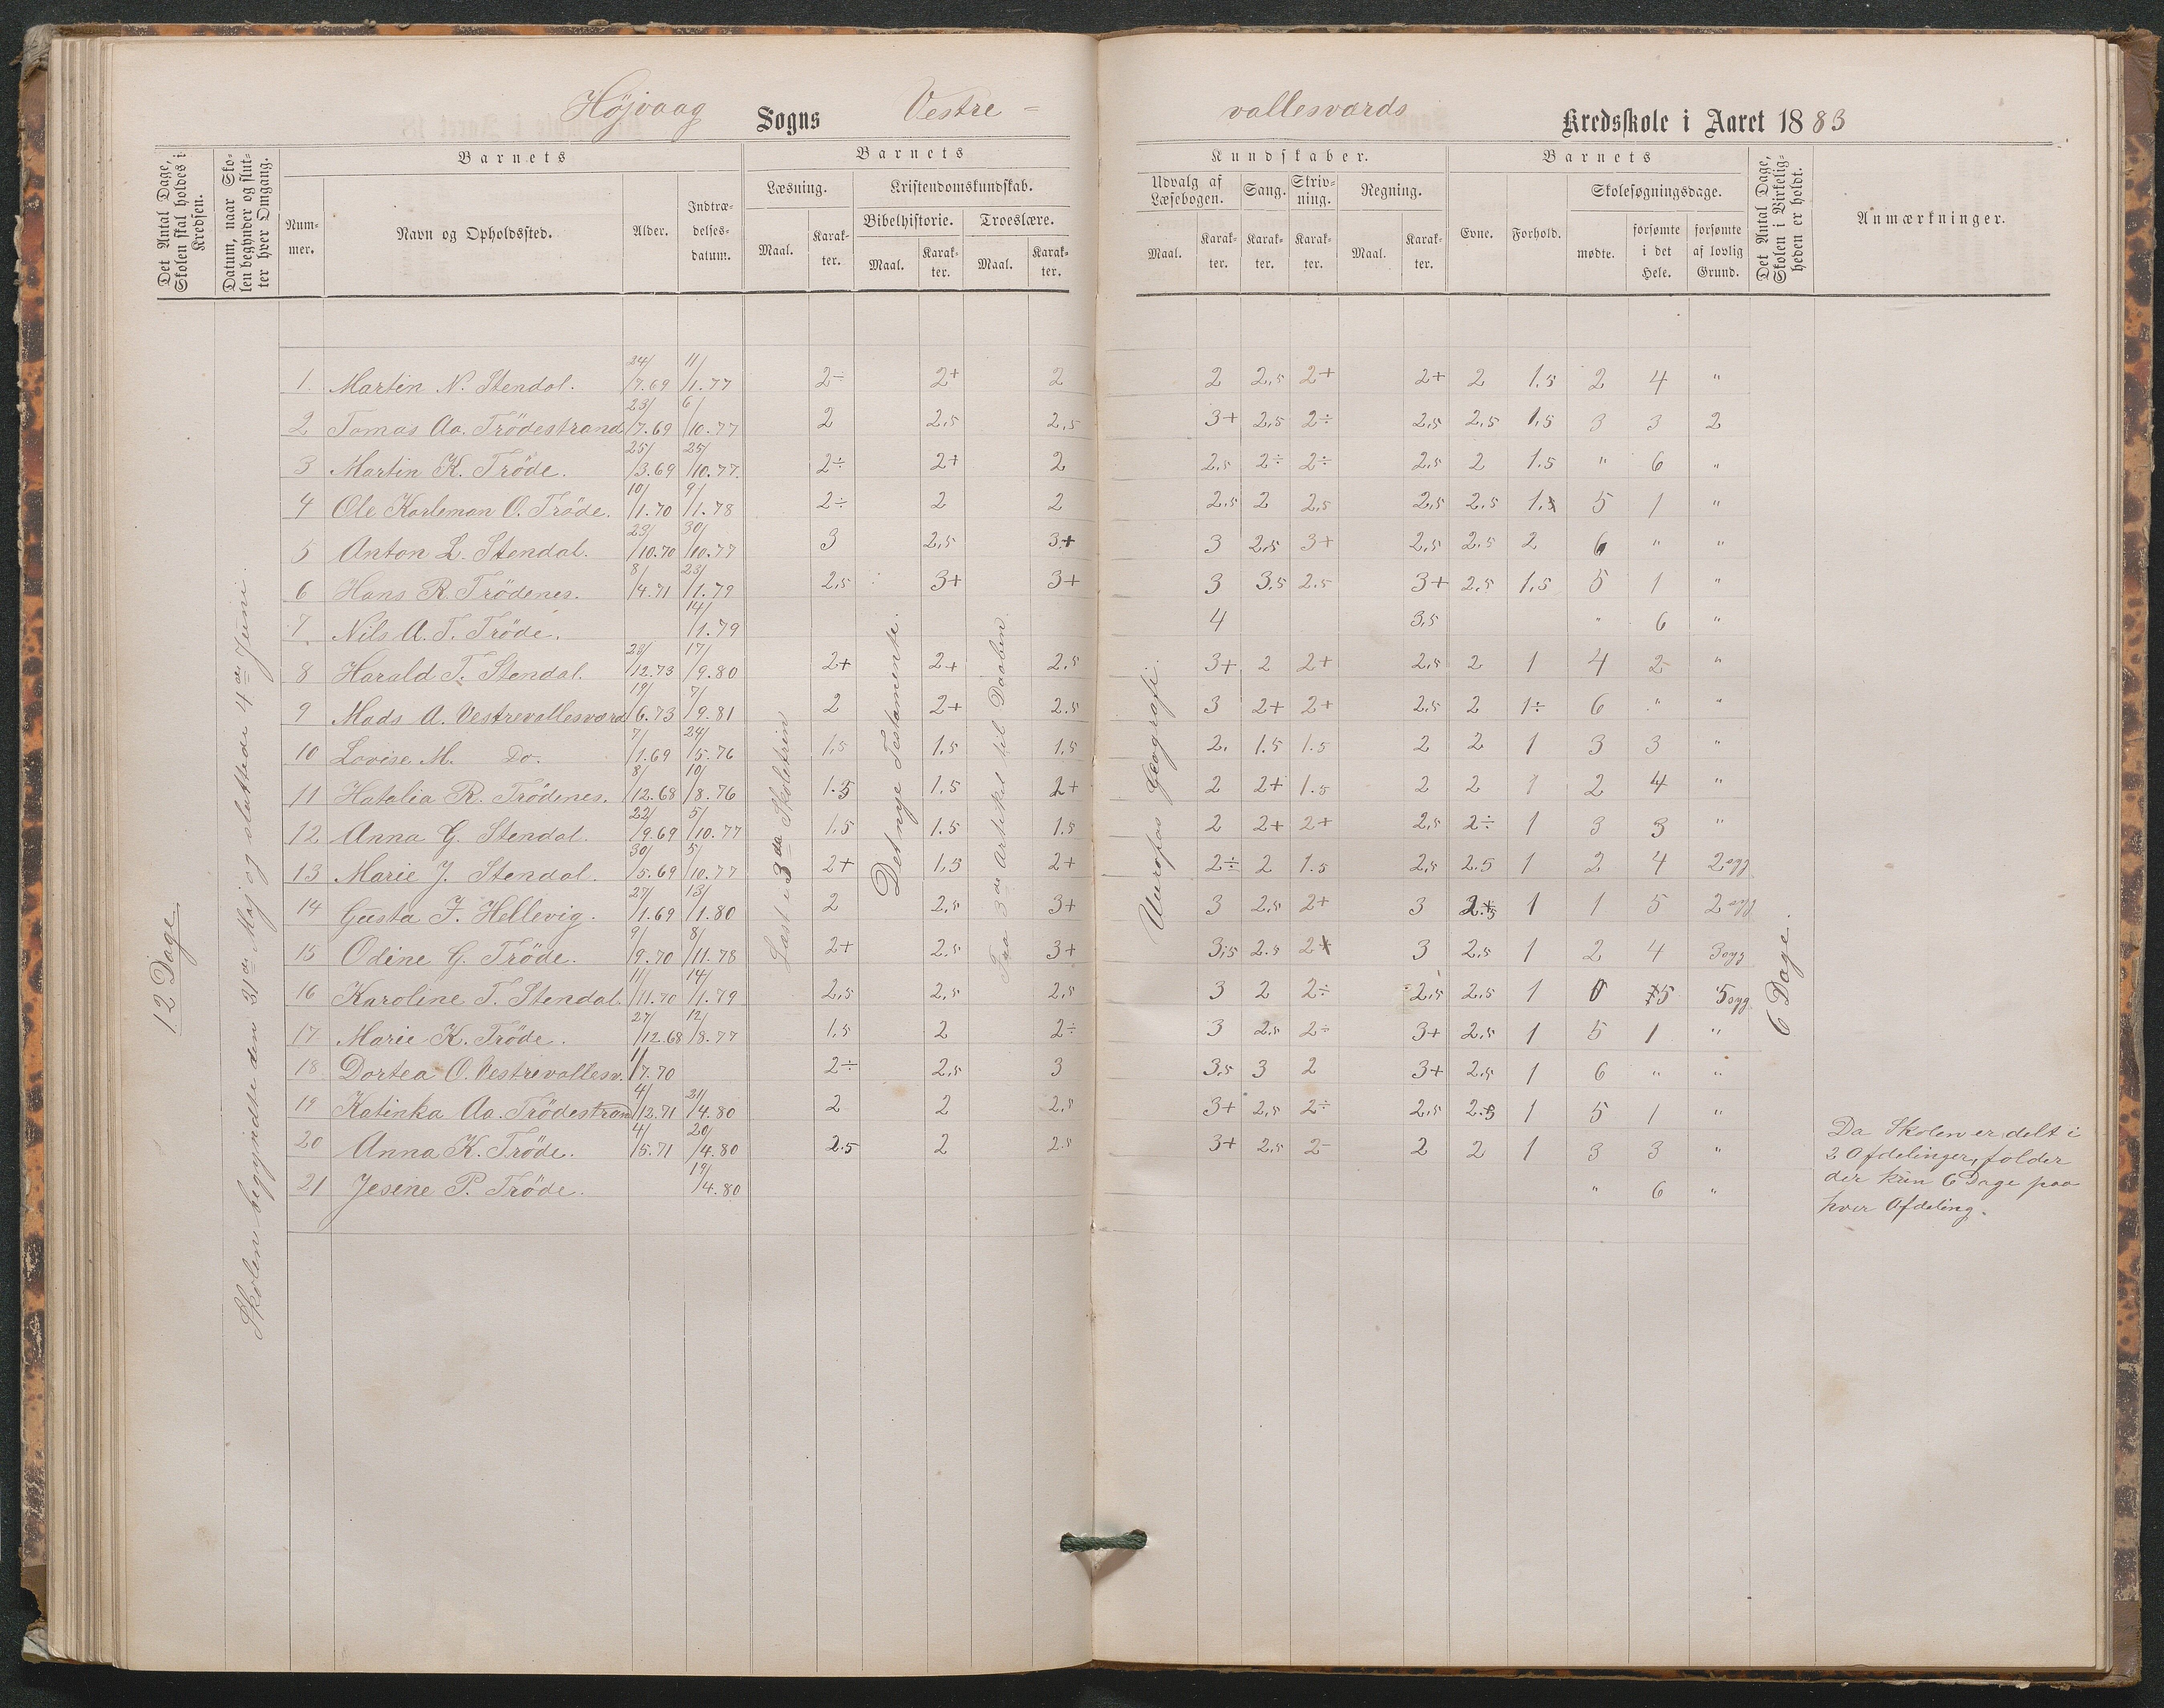 Höjvaag Sogns Vestre - vallesværds Kredsskole i Aaret 1883
Det Antal Dage, Skolen skal holdes i Kredsen.
Datum, naar Skolen begynder og slutter hver Omgang.
Barnets
Nummer.
Navn og Opholdssted.
Alder.
Indtrædelsesdatum.
Barnets
Læsning.
Maal.
Karakter.
Kristendomskundskab.
Bibelhistorie.
Maal.
Karakter.
Troeslære.
Maal.
Karakter.
Kundskaber.
Udvalg af Læsebogen.
Maal.
Karakter.
Sang.
Karakter.
Skrivning.
Karakter.
Regning.
Maal.
Karakter.
Barnets
Evne.
Forhold.
Skolesøgningsdage.
mødte.
forsømte i det Hele.
forsømte af lovlig Grund.
Det Antal Dage, Skolen i Virkeligheden er holdt.
Anmærkninger.
12 Dage
Skolen begyndte den 31de Maj og sluttede 4de Juni.
Læst i 3die Skoletrin
Det nye Testamente.
Fra 3de Artikel til Daaben
Europas Geografi.
6 Dage.
1. Martin N. Stendal. 24/7.69 11/1.77 2÷ 2+ 2 2 2,5 2+ 2+ 2 1.5 2 4 "
2 Tomas Aa. Trödestrand 23/7.69 6/10.77 2 2,5 2,5 3+ 2,5 2÷ 2,5 2,5 1,5 3 3 2
3 Martin K. Tröde. 25/3.69 25/10.77. 2÷ 2+ 2 2,5 2÷ 2÷ 2,5 2 1.5 " 6 "
4 Ole Karleman O. Tröde. 10/1.70 9/1.78 2÷ 2 2 2,5 2 2,5 2,5 2.5 5 1 "
5 Anton L. Stendal. 23/10.70 30/10.77 3 2,5 3+ 3 2,5 3+ 2,5 2.5 2 6 " "
6 Hans R. Trödenes. 8/4.71 23/1.79 2,5 3+ 3+ 3 3,5 2.5 3+ 2,5 1,5 5 1 "
7 Nils A. T. Tröde. 14/1.79 4 3,5 " 6 "
8 Harald T. Stendal. 28/12.73 17/9.80 2+ 2+ 2.5 3+ 2 2+ 2,5 2 1 4 2 "
9 Mads A. Vestrevallesværd 19/6.73 7/9.81 2 2+ 2.5 3 2+ 2+ 2,5 2 1÷ 6 " "
10 Lovise M. Do. 7/1.69 24/5.76 1,5 1.5 1.5 2. 1.5 1.5 2 2 1 3 3 "
11 Hatalia R. Trödenes. 8/12.68 10/8.76 1.5 1.5 2+ 2 2+ 1.5 2 2 1 2 4 "
12 Anna G. Stendal. 22/9.69 5/10.77 1,5 1.5 1.5 2 2+ 2+ 2,5 2÷ 1 3 3 "
13 Marie J. Stendal. 30/5.69 5/10.77 2+ 1,5 2+ 2÷ 2 1.5 2,5 2.5 1 2 4 2 syg
14 Gusta F. Hellevig. 27/1.69 13/1.80 2 2,5 3+ 3 2,5 2+ 3 1 1 5 2 syg
15 Odine G. Tröde. 9/9.70 8/11.78 2+ 2.5 3+ 3,5 2.5 2+ 3 2,5 1 2 4 3 syg
16 Karoline T. Stendal. 11/11.70 14/1.79 2,5 2,5 2,5 3 2 2÷ 2,5 2,5 1 5 5 syg
17 Marie K. Tröde. 27/12.68 12/8.77 1,5 2 2÷ 3 2.5 2÷ 3+ 2,5 1 5 1 "
18 Dortea O. Vestrevallesv. 1/7.70 2÷ 2,5 3 3,5 3 2 3+ 2.5 1 6 " "
19 Katinka Aa. Trödestrand 4/12.71 21/4.80 2 2 2,5 3+ 2,5 2÷ 2,5 1 5 1 "
20 Anna K. Tröde. 4/5.71 20/4.80 2.5 2 2.5 3+ 2,5 2- 2 2 1 3 3 "
21 Jesine P. Tröde. 19/4.80 " 6 "
Da Skolen er delt i
2 Afdelinger, falder
der kun 6 Dage paa
hver Afdeling.